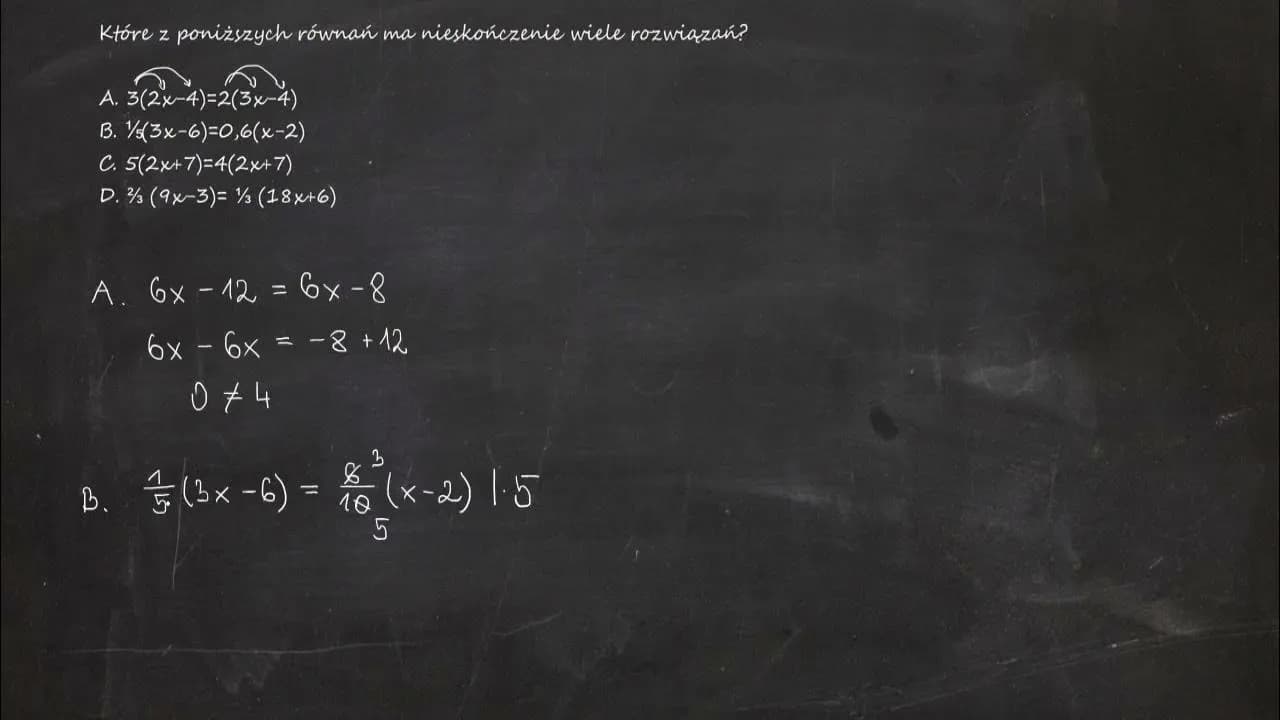 Które z poniższych równań ma nieskończenie wiele rozwiązań?
A. 3(2x-4)=2(3x-4)
B. ⅕(3x-6)=0,6(x-2)
C. 5(2x+7)=4(2x+7)
D. ⅔ (9x-3)= ⅓ (18x+6)
A. 6x - 12 = 6x - 8
6x - 6x = -8 + 12
0 ≠ 4
B. 1/5 (3x - 6) = 6/10 3/5 (x - 2) | · 5